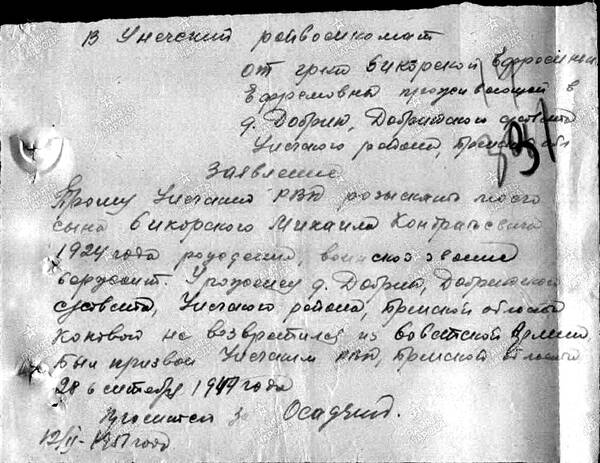 В Унечский райвоенкомат
от гр-ки Сикорской Ефросиньи
Ефремовны проживающей в
д. Добрик, Добрикского с/совета
Унечского района, Брянской обл
Заявление
Прошу Унечский РВК розыскать моего
сына Сикорского Михаила Кондратьевича
1924 года рождения, воинское звание
сержант. Уроженец д. Добрик, Добрикского
с/совета, Унечского района, Брянской области
Который не возвратился из Советской Армии,
был призван Унечским РВК, Брянской области
28 сентября 1944 года
12/II- года.